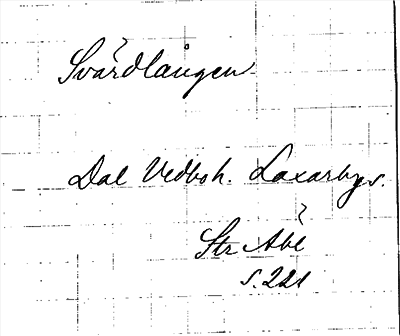 Svärdlången
Dal Vedbo h. Laxarby s.
Str Åbl
s. 221